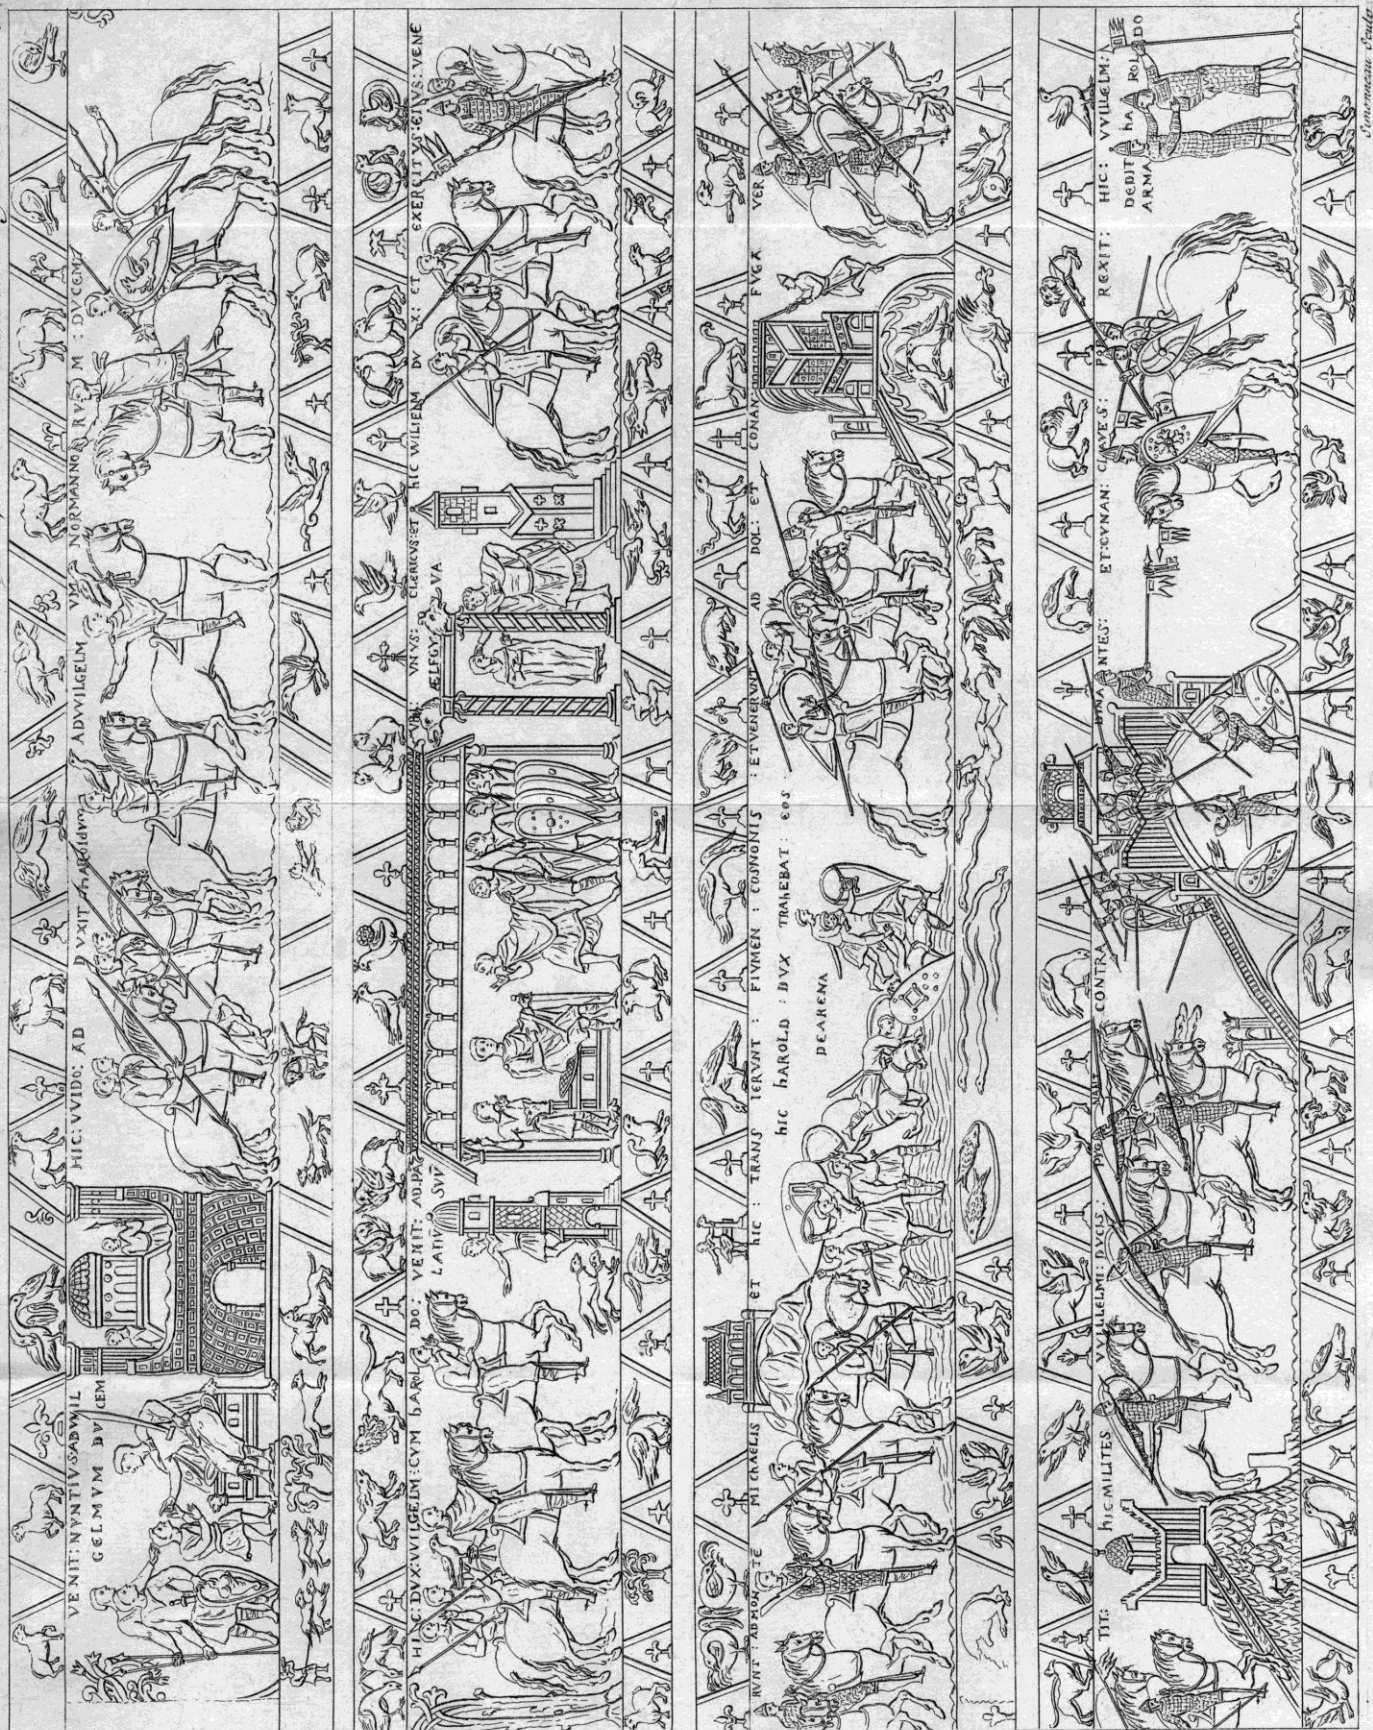 VENIT: NVNTIVS AD WIL
GELMVM DV CEM
HIC: VVIDO: AD DVXIT hAROLDVM AD VVILGELM VM: NORMANNO RVM: DVCEM
HIC: DVX: VVILGELM: CVM hAROL DO: VENIT: AD PA
LATIV SVV
VNVS: CLERICVS: ET
ÆLFGYVA
hIC WILIELM DVX: ET EXERCITVS: EIVS: VENE
RVNT: AD MONTE MIChAELIS ET hIC: TRANS IERVNT: FLVMEN: COSNONIS: ET VENERVNT AD DOL: ET CONAN: FVGA VER
hIC hAROLD: DVX TRAhEBAT: EOS
DE ARENA
TIT: hIC MILITES VVILLELMI: DVCIS: PVGNANT CONTRA DINANTES: ET: CVNAN: CLAVES: POR REXIT: HIC: VVILLELM:
DEDIT hAROLDO
ARMA
Simonneau Sculp.